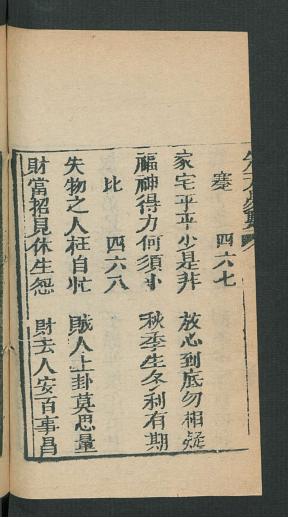 蹇　四六七
家宅平平少是非　放心到底勿相疑
福神得力何須卜　秋季生冬利有期
比　四六八
失物之人枉自忙　賊人上卦莫思量
財當招見休生怨　財去人安百事昌